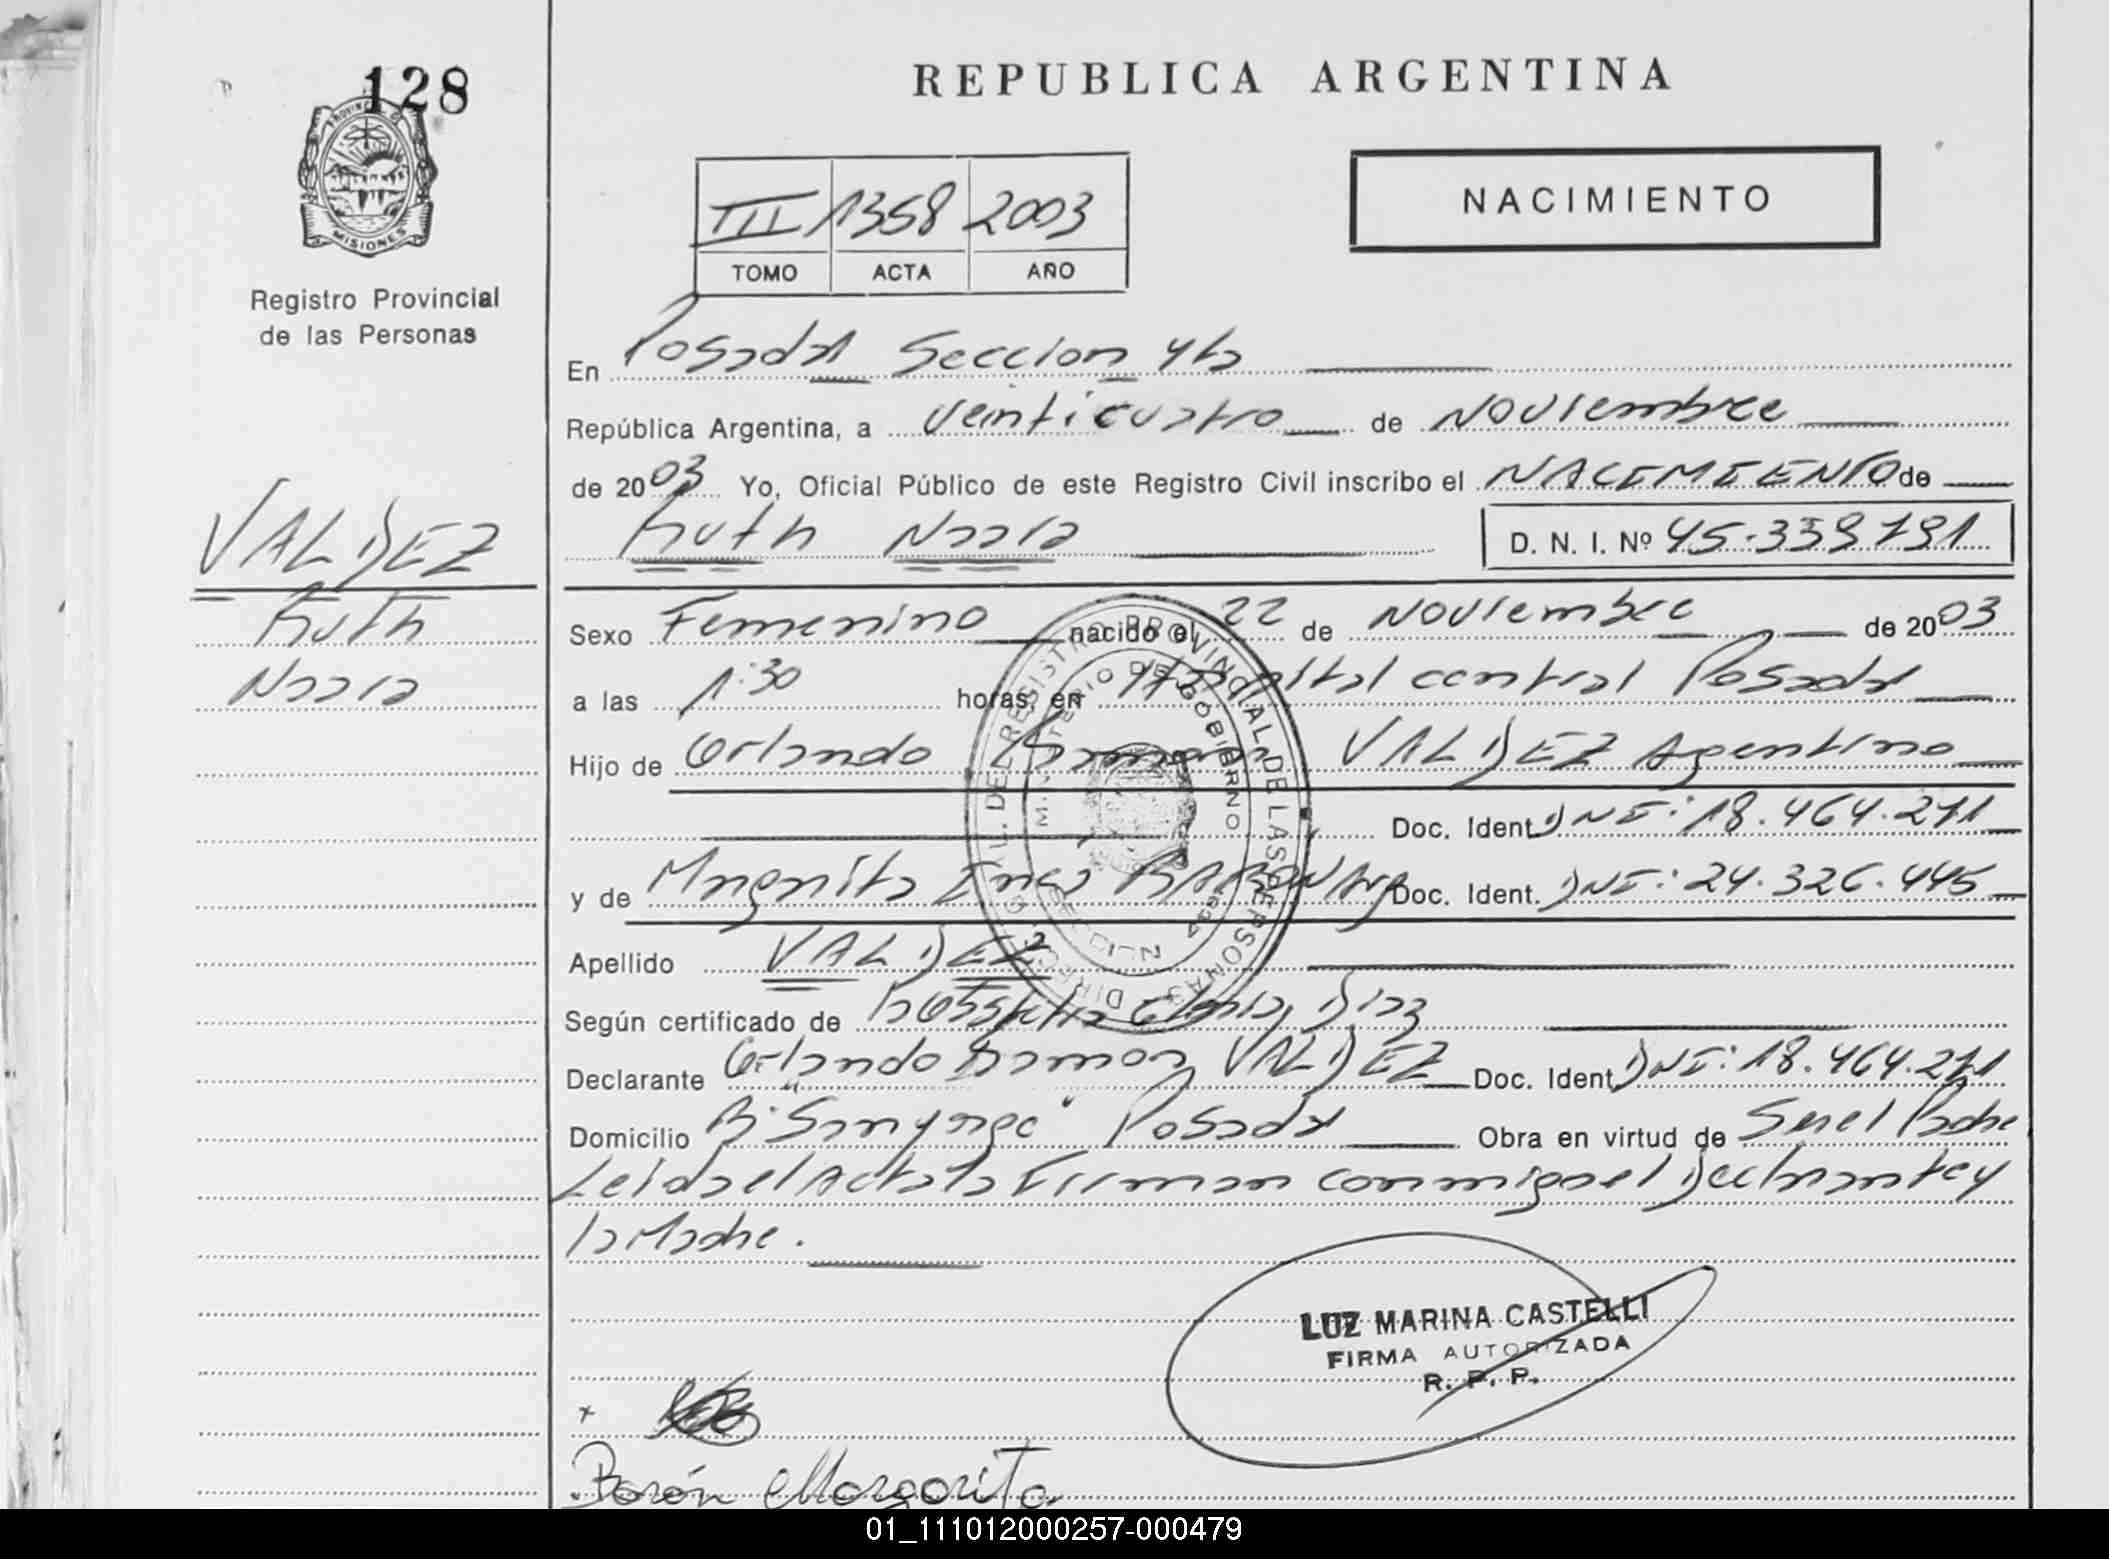 128
REPUBLICA ARGENTINA
PROVINCIA
MISIONES
Registro Provincial
de las Personas
NACIMIENTO
III 1358 2003
TOMO ACTA AÑO
En Posadas Seccion 4ta
República Argentina, a veinticuatro de Noviembre
de 2003 Yo, Oficial Público de este Registro Civil inscribo el NACIMIENTO de
Ruth Naara D. N. I. Nº 45.339.791
VALDEZ
Ruth
Naara
Sexo Femenino nacido el 22 de Noviembre de 2003
a las 1:30 horas, en Hospital central Posadas
Hijo de Orlando Ramon VALDEZ Agentino
Doc. Ident. DNI: 18.464.271
y de Margarita Ines Doc. Ident. DNI: 24.326.445
Apellido VALDEZ
Según certificado de Diaz
Declarante Orlando Ramon VALDEZ Doc. Ident. DNI: 18.464.271
Domicilio Posadas Obra en virtud de Ser el Padre
Leida el Acta la Firman conmigo el Declarante y
la Madre.
DIRECC. GRAL. DEL REGISTRO PROVINCIAL DE LAS PERSONAS
MINISTERIO DE GOBIERNO
LUZ MARINA CASTELLI
FIRMA AUTORIZADA
R. P. P.
x
Barón Margarita
01_111012000257-000479